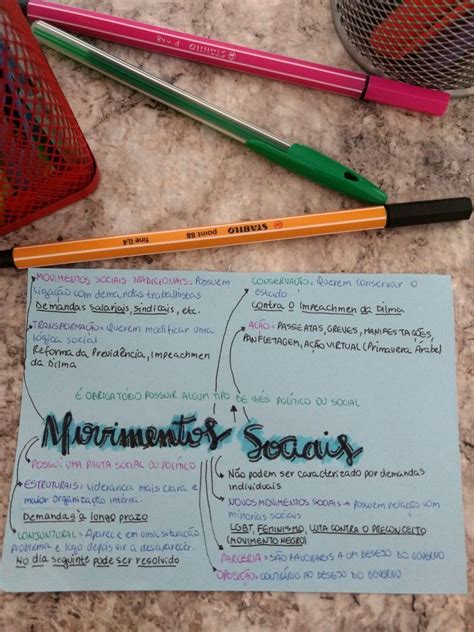 STABILO Pen 68
STABILO point 88 fine 0,4
MOVIMENTOS SOCIAIS TRADICIONAIS = Possuem
ligação com demandas trabalhistas
Demandas salariais, sindicais, etc.
TRANSFORMAÇÃO = Querem modificar uma
lógica social
Reforma da Previdência, Impeachmen
da Dilma
CONSERVAÇÃO = Querem conservar o
estado
Contra o Impeachmen da Dilma
AÇÃO = PASSEATAS, GREVES, MANIFESTAÇÕES,
PANFLETAGEM, AÇÃO VIRTUAL (Primavera Árabe)
É OBRIGATÓRIO POSSUIR ALGUM TIPO DE VIÉS POLÍTICO OU SOCIAL
Movimentos Sociais
POSSUI UMA PAUTA SOCIAL OU POLÍTICO
ESTRUTURAIS = liderança mais clara e
maior organização interna.
Demandas a longo prazo
CONJUNTURAL = Aparece em uma situação
problema e logo depois vir a desaparecer.
No dia seguinte pode ser resolvido
Não podem ser caracterizado por demandas
individuais
NOVOS MOVIMENTOS SOCIAIS → Possuem relação com
minorias sociais
LGBT, FEMINISMO, LUTA CONTRA O PRECONCEITO
(MOVIMENTO NEGRO)
PARCERIA = SÃO FAVORÁVEIS A UM DESEJO DO GOVERNO
OPOSIÇÃO = CONTRÁRIO AO DESEJO DO GOVERNO